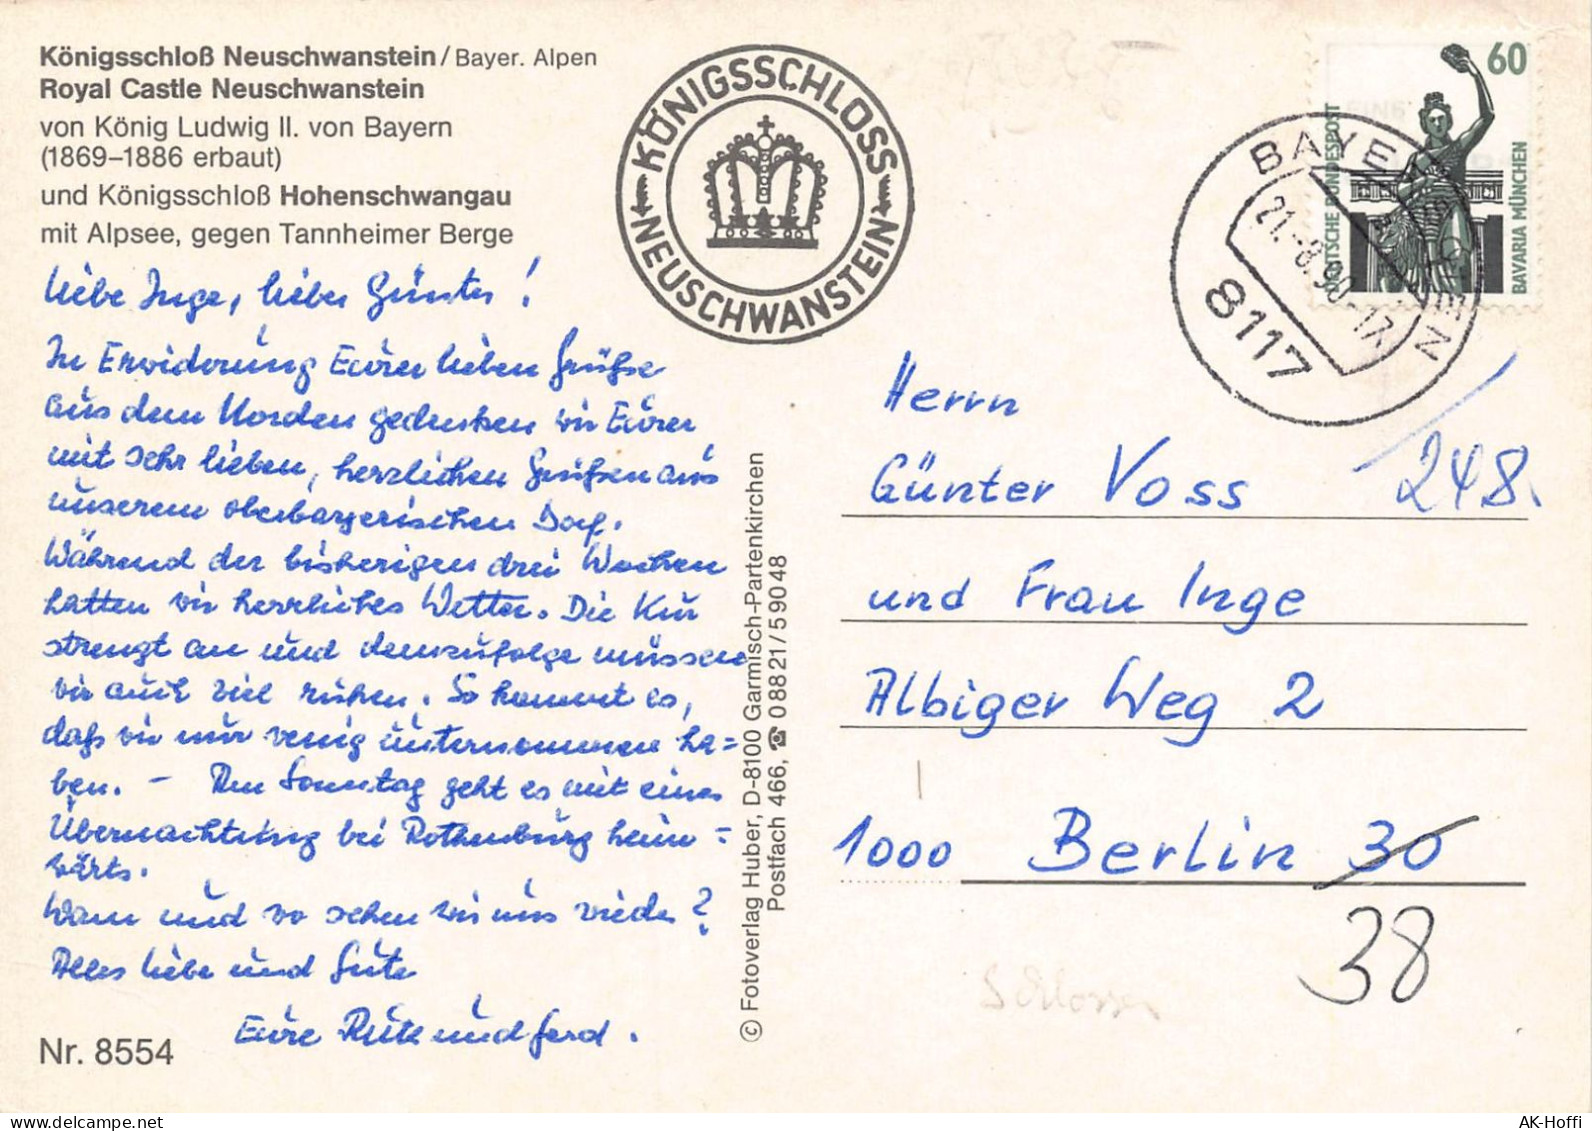 Königsschloß Neuschwanstein / Bayer. Alpen
Royal Castle Neuschwanstein
von König Ludwig II. von Bayern
(1869–1886 erbaut)
und Königsschloß Hohenschwangau
mit Alpsee, gegen Tannheimer Berge
Liebe Inge, lieber Günter!
In Erwiderung Eurer lieben Grüße
aus dem Norden gedenken wir Eurer
mit sehr lieben, herzlichen Grüßen aus
unserem oberbayerischen Dorf.
Während der bisherigen drei Wochen
hatten wir herrliches Wetter. Die Kur
strengt an und demzufolge müssen
wir auch viel ruhen. So kommt es,
daß wir nur wenig unternommen ha=
ben. – Am Sonntag geht es mit einer
Übernachtung bei Rothenburg heim=
wärts.
Wann und wo sehen wir uns wieder?
Alles Liebe und Gute
Eure Ruth und Gerd.
Nr. 8554
KÖNIGSSCHLOSS
NEUSCHWANSTEIN
© Fotoverlag Huber, D-8100 Garmisch-Partenkirchen
Postfach 466, ☎ 08821/59048
60
DEUTSCHE BUNDESPOST
BAVARIA MÜNCHEN
21.-8.90-17
8117
Herrn
Günter Voss 248.
und Frau Inge
Albiger Weg 2
1000 Berlin 30
38
Schlosser
AK-Hoffi